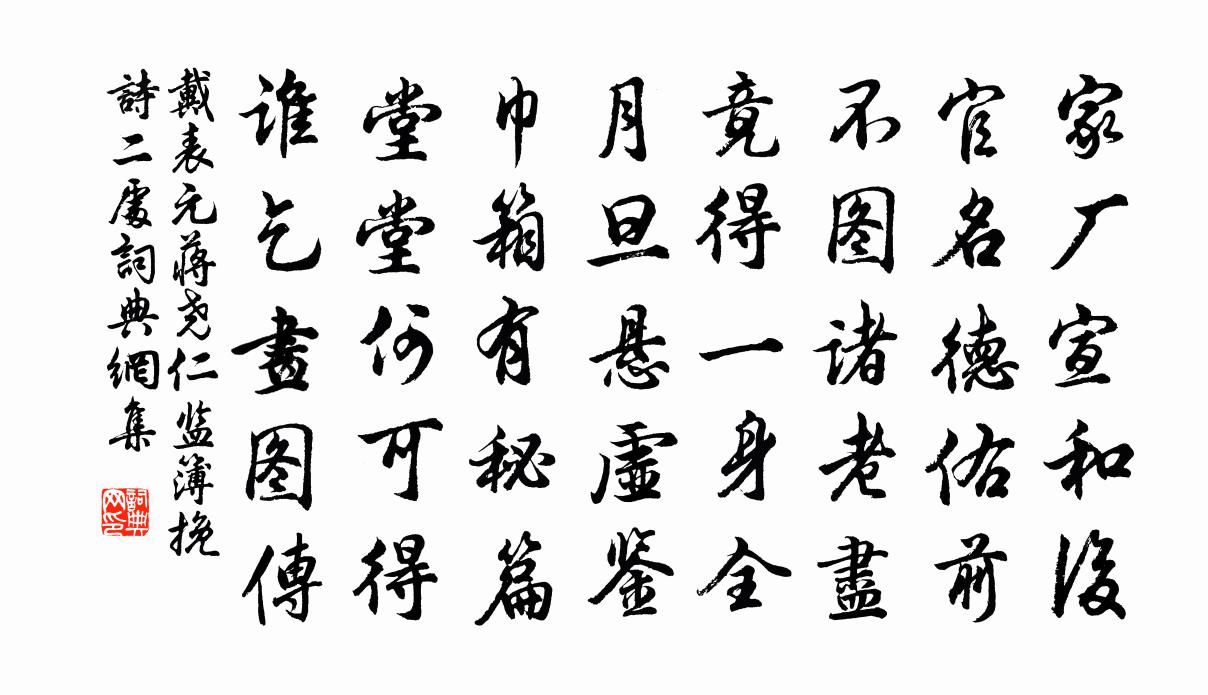 家厂宣和後
官名德佑前
不图诸老盡
竟得一身全
月旦悬虚鉴
巾箱有秘篇
堂堂何可得
谁乞畫图傳
戴表元蒋尧仁监簿挽
詩二處詞典網集
詞典
网印